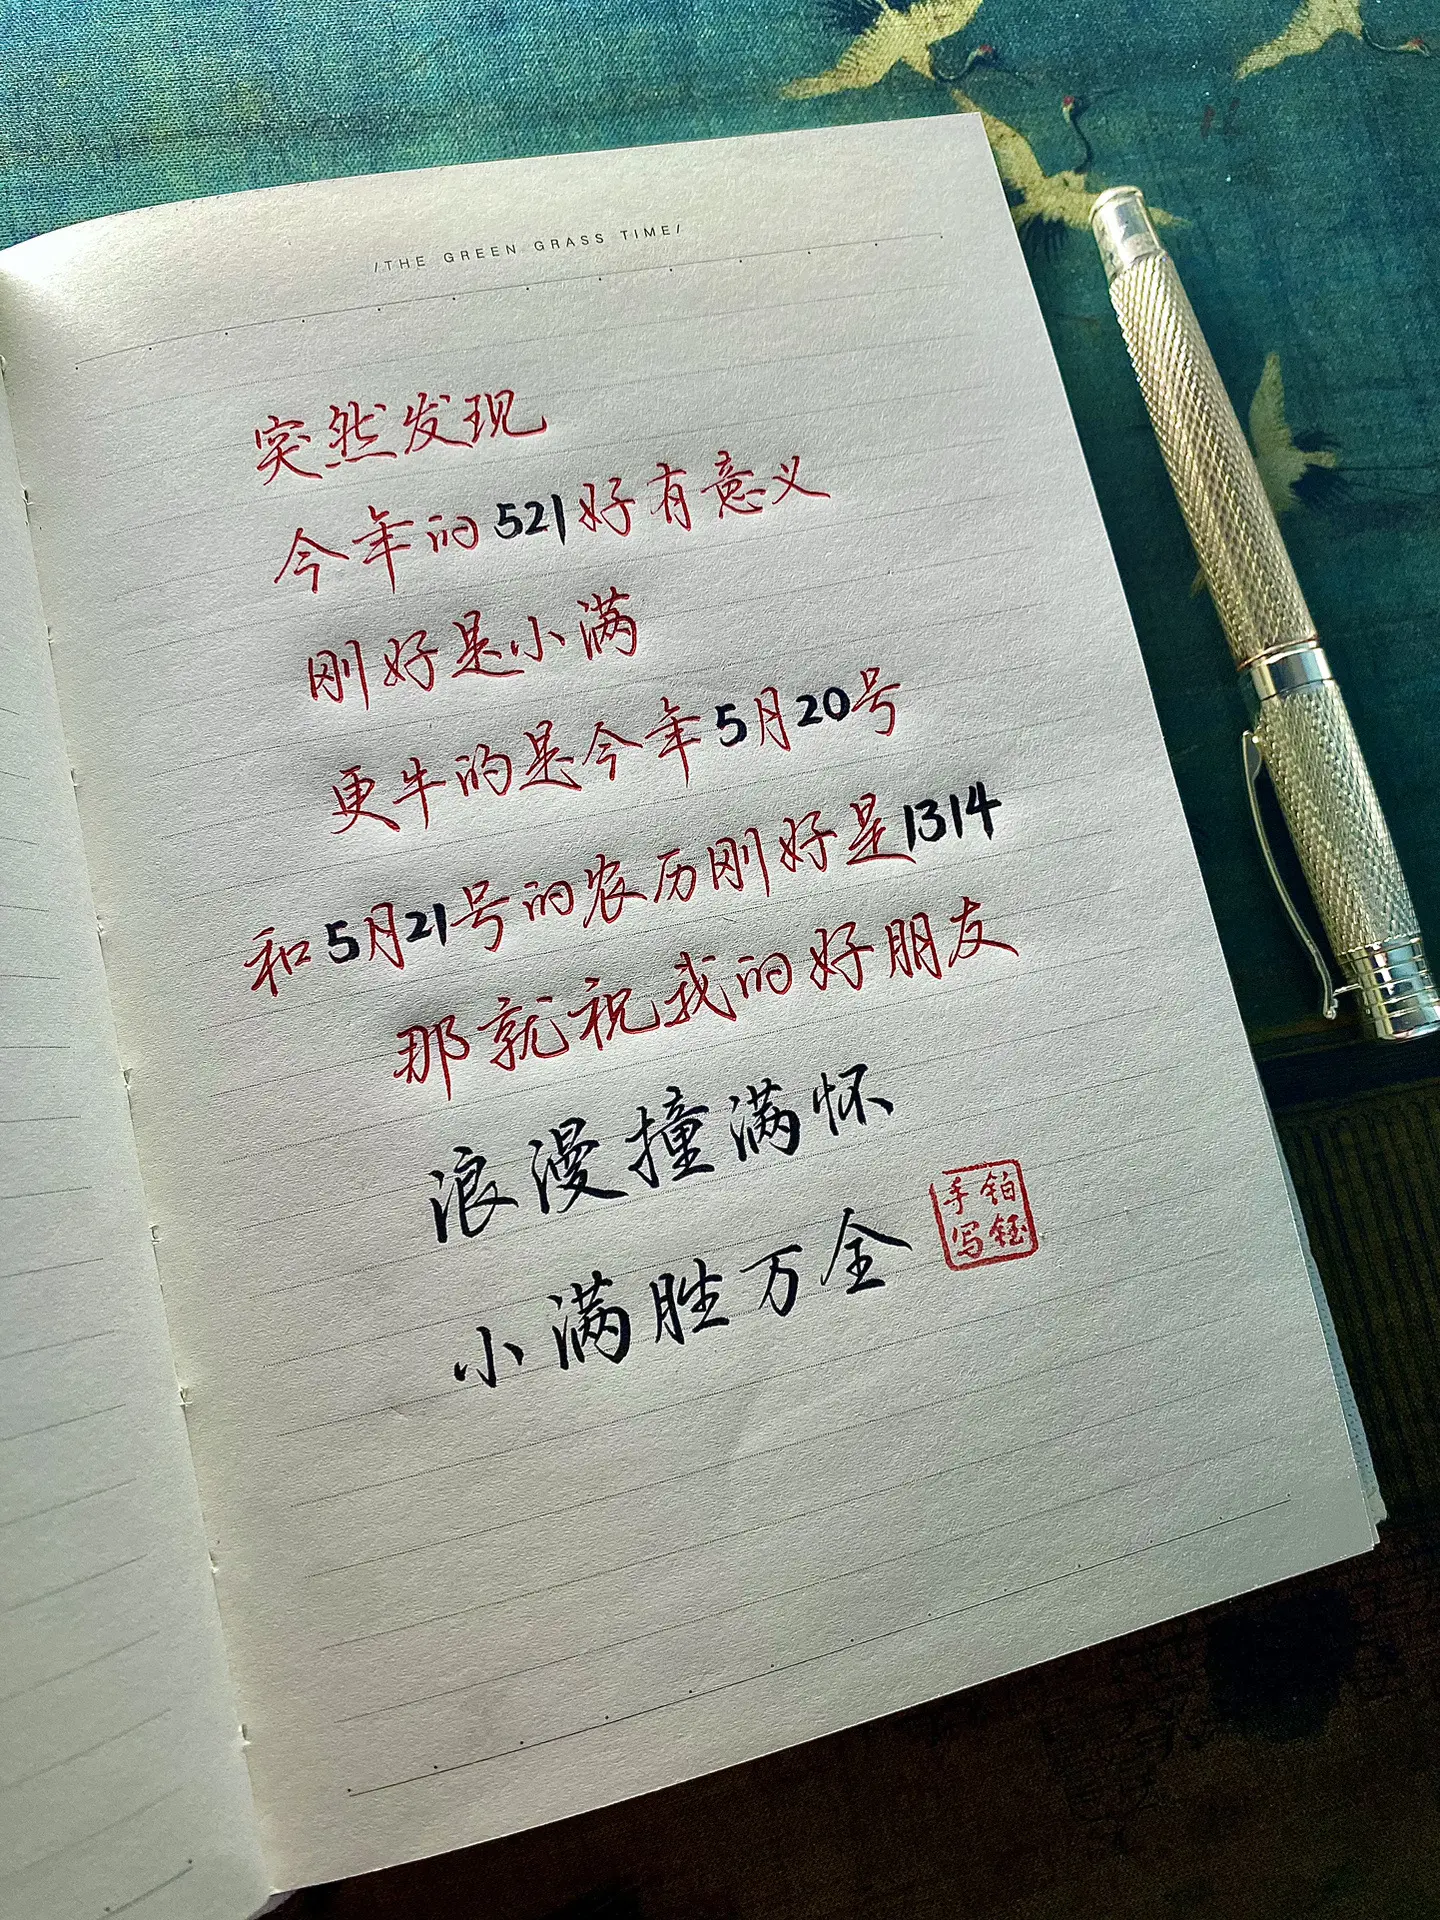 /THE GREEN GRASS TIME/
突然发现
今年的521好有意义
刚好是小满
更牛的是今年5月20号
和5月21号的农历刚好是1314
那就祝我的好朋友
浪漫撞满怀
小满胜万全
铂钰
手写